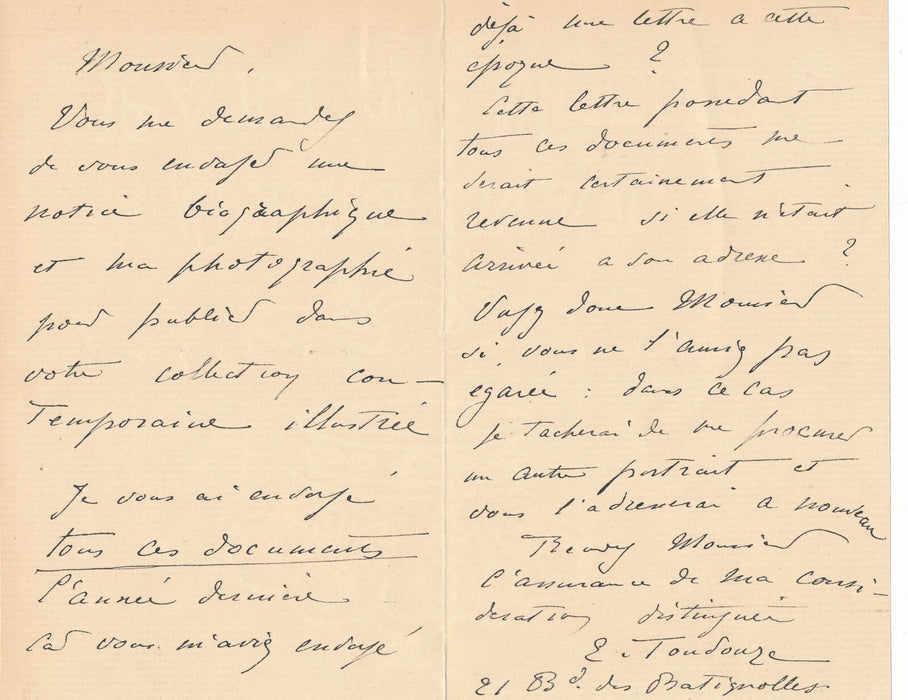 Monsieur,
Vous me demandez
de vous envoyer une
notice biographique
et ma photographie
pour publier dans
votre collection con-
temporaine illustrée
Je vous ai envoyé
tous ces documents
l'année dernière
car vous m'aviez envoyé
déjà une lettre a cette
époque ?
Cette lettre possedant
tous ces documents me
serait certainement
revenue si elle n'était
arrivée a son adresse ?
Voyez donc Monsieur
si vous ne l'auriez pas
égarée : dans ce cas
je tacherai de me procurer
un autre portrait et
vous l'adresserai a nouveau
Recevez Monsieur
l'assurance de ma consi-
deration distinguée
E. Toudouze
21 Bd. des Batignolles